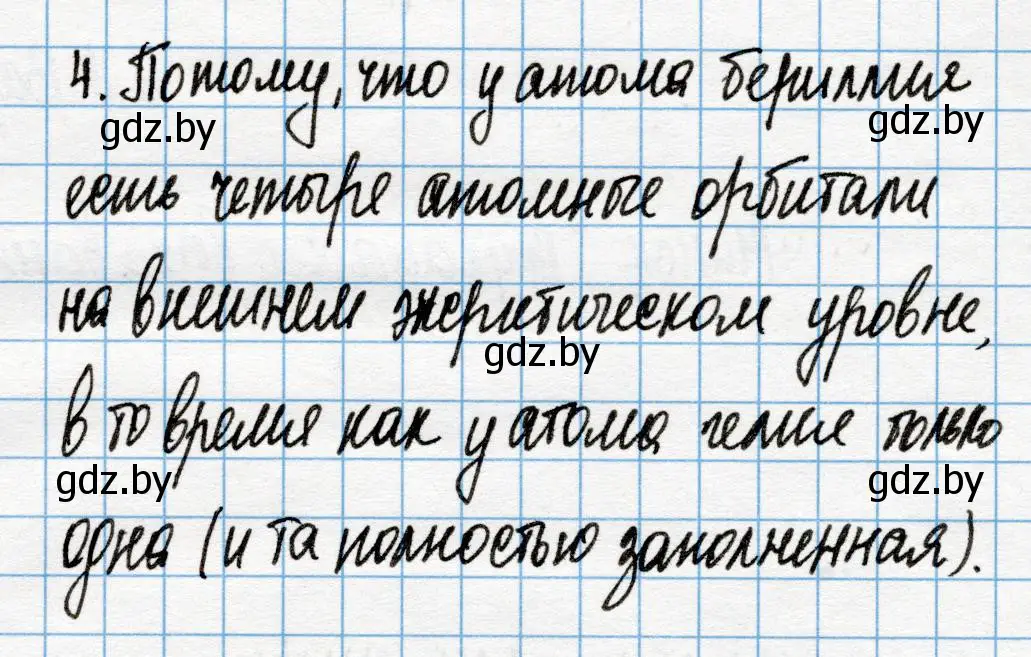 4. Потому, что у атома бериллия
gdz.by gdz.by
есть четыре атомные орбитали
на внешнем энергетическом уровне,
gdz.by
в то время как у атома гелия только
gdz.by gdz.by
одна (и та полностью заполненная).